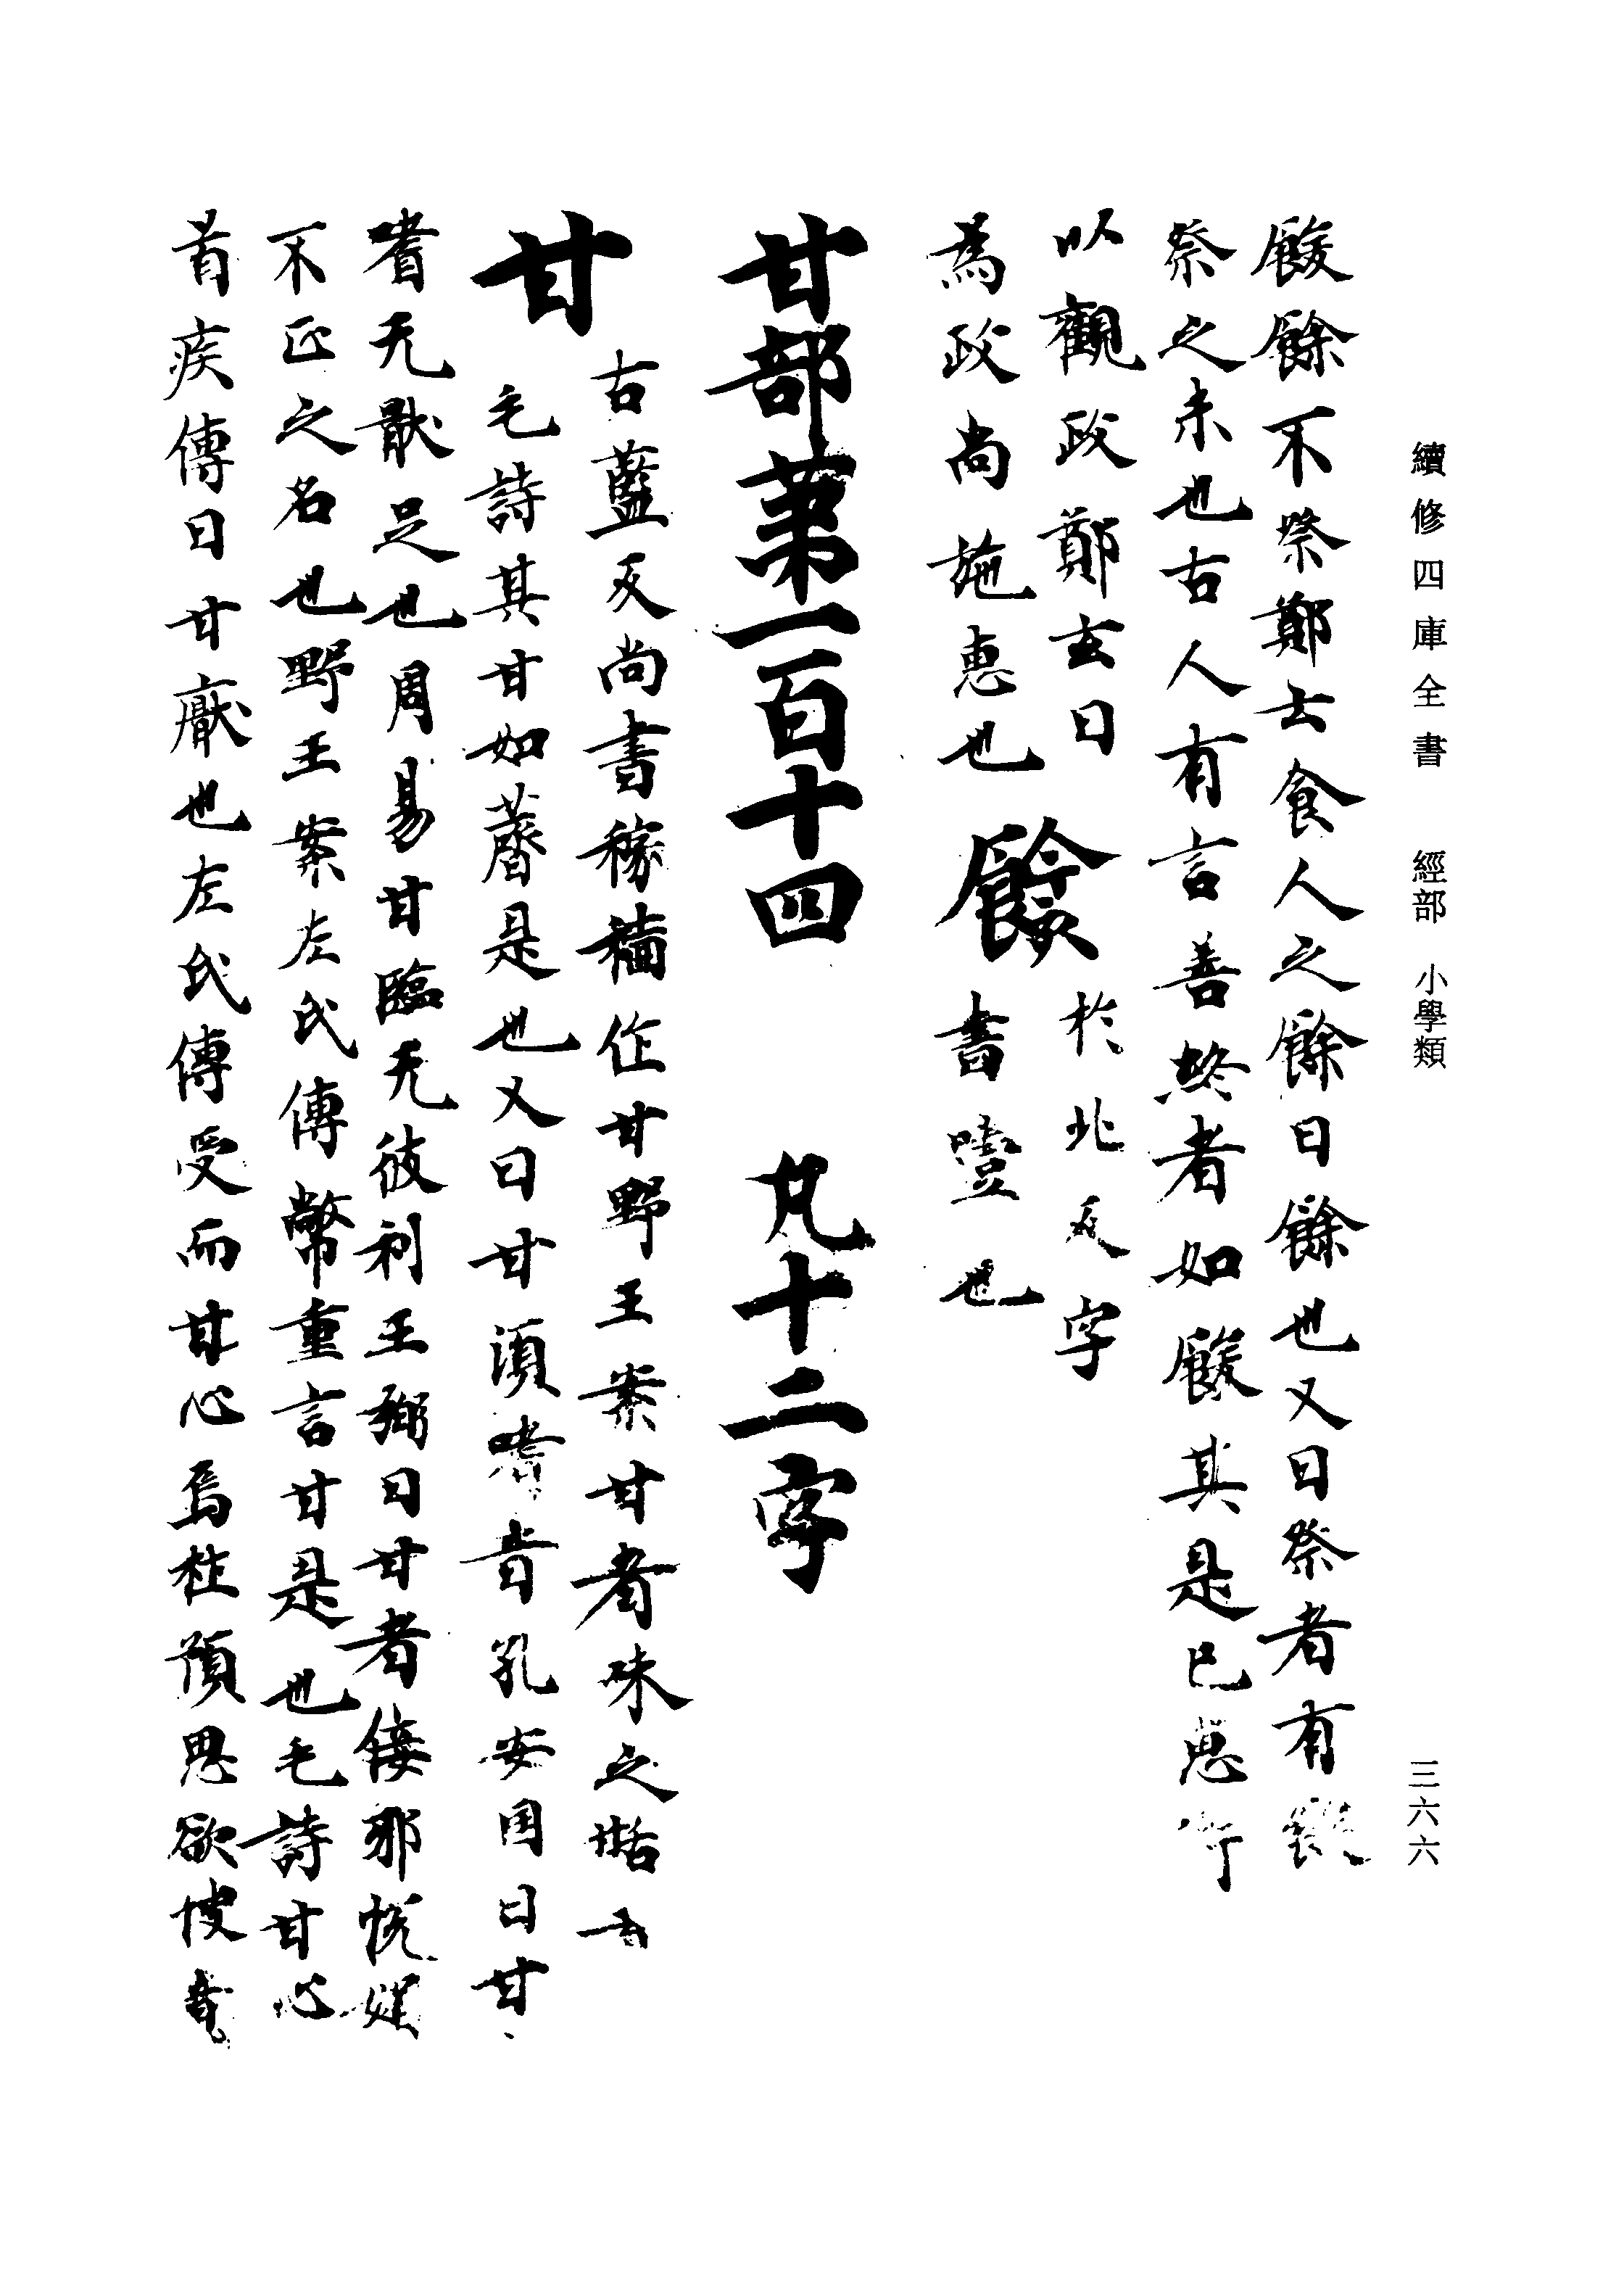 續修四庫全書 經部 小學類
三六六
餕餘不祭鄭玄食人之餘曰餘也又曰祭者有
祭之末也古人有言善終者如餕其是已惠
以觀政鄭玄曰
為政尚施惠也
於北反字
書噎也
甘部第一百十四 凡十二字
甘
古藍反尚書稼穡作甘野王案甘者味之
毛詩其甘如薺是也又曰甘湏嗜音孔安国曰甘
嗜无猒足也周易甘臨无彼利王弼曰甘者佞邪悦媚
不正之名也野王案左氏傳幣重言甘是也毛詩甘心
首疾傳曰甘厭也左氏傳受而甘心焉杜預思欲快意